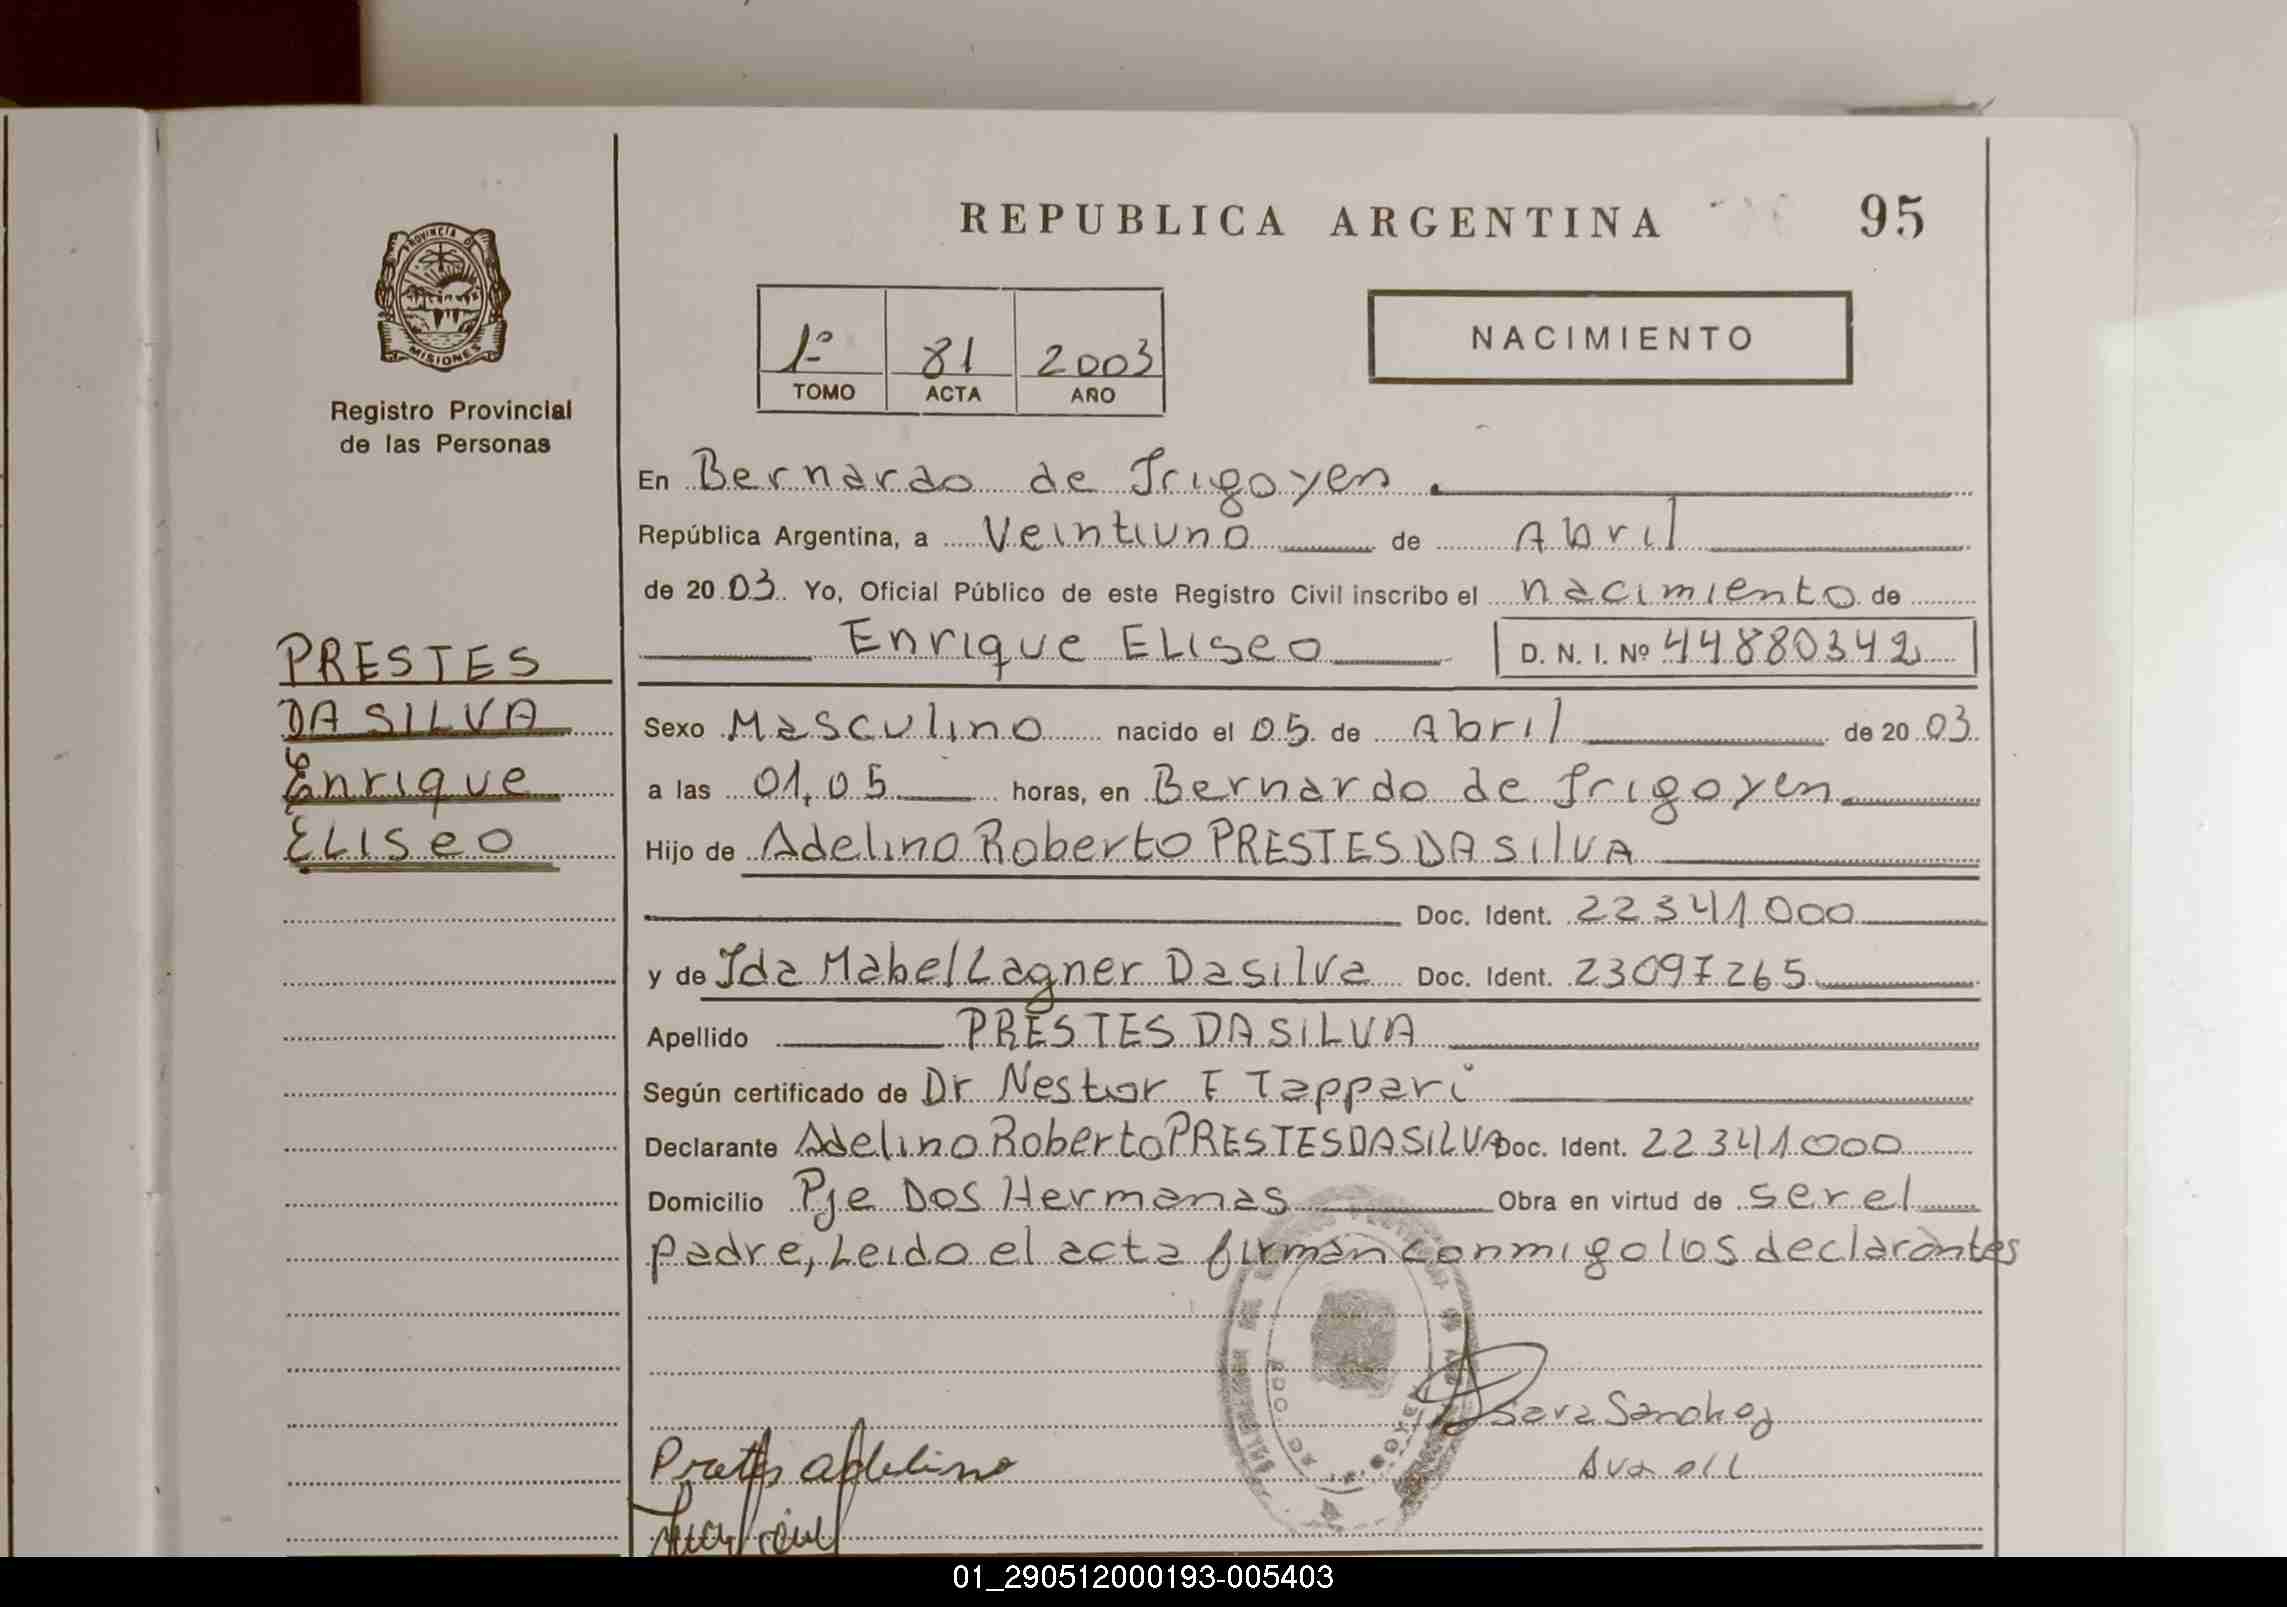 REPUBLICA ARGENTINA 95
PROVINCIA DE
MISIONES
Registro Provincial
de las Personas
1º 81 2003
TOMO ACTA AÑO
NACIMIENTO
En Bernardo de Irigoyen
República Argentina, a Veintiuno de Abril
de 2003 Yo, Oficial Público de este Registro Civil inscribo el nacimiento de
Enrique ELiseo D. N. I. Nº 44880342
PRESTES
DA SILVA
Enrique
ELiseo
Sexo Masculino nacido el 05 de Abril de 2003
a las 01,05 horas, en Bernardo de Irigoyen
Hijo de Adelino Roberto PRESTES DA SilVA
Doc. Ident. 22341000
y de Ida Mabel Lagner Dasilva Doc. Ident. 23097265
Apellido PRESTES DA SILVA
Según certificado de Dr Nestor F Tappari
Declarante Adelino Roberto PRESTES DA SILVA Doc. Ident. 22341000
Domicilio Pje Dos Hermanas Obra en virtud de ser el
padre, Leido el acta firman conmigo los declarantes
BDO. DE
Sara Sanchez
Adelino
01_290512000193-005403